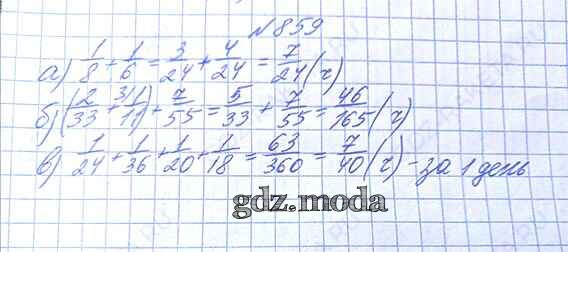 №859
а) 1/8 + 1/6 = 3/24 + 4/24 = 7/24 (ч)
б) (2/33 + 3/1/11) + 7/55 = 5/33 + 7/55 = 46/165 (ч)
в) 1/24 + 1/36 + 1/20 + 1/18 = 63/360 = 7/40 (ч) - за 1 день
gdz.moda